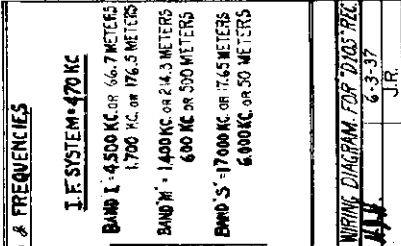 & FREQUENCIES
I.F. SYSTEM = 470 KC
BAND L = 4,500 KC. OR 66.7 METERS
1,700 KC. OR 176.5 METERS
BAND 'M' = 1,400 KC. OR 214.3 METERS
600 KC. OR 500 METERS
BAND 'S' = 17000 KC. OR 17.65 METERS
6,000 KC. OR 50 METERS
WIRING DIAGRAM FOR "D105" REC.
6-3-37
J.R.